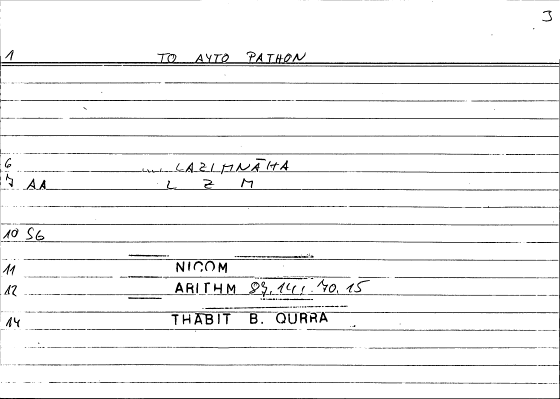 J
1 TO AYTO PATHON
6 ... LAZIMNĀHA
7 AA L Z M
10 SG
11 NICOM
12 ARITHM 89,14; 70,15
14 THĀBIT B. QURRA